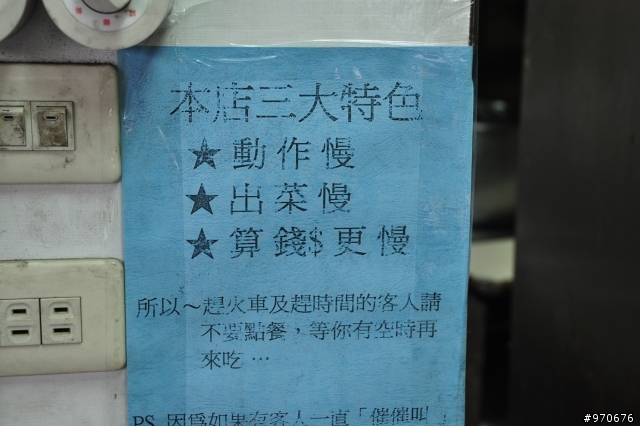 本店三大特色
★動作慢
★出菜慢
★算錢$更慢
所以~趕火車及趕時間的客人請
不要點餐，等你有空時再
來吃…
PS 因為如果有客人一直「催催叫」
#970676